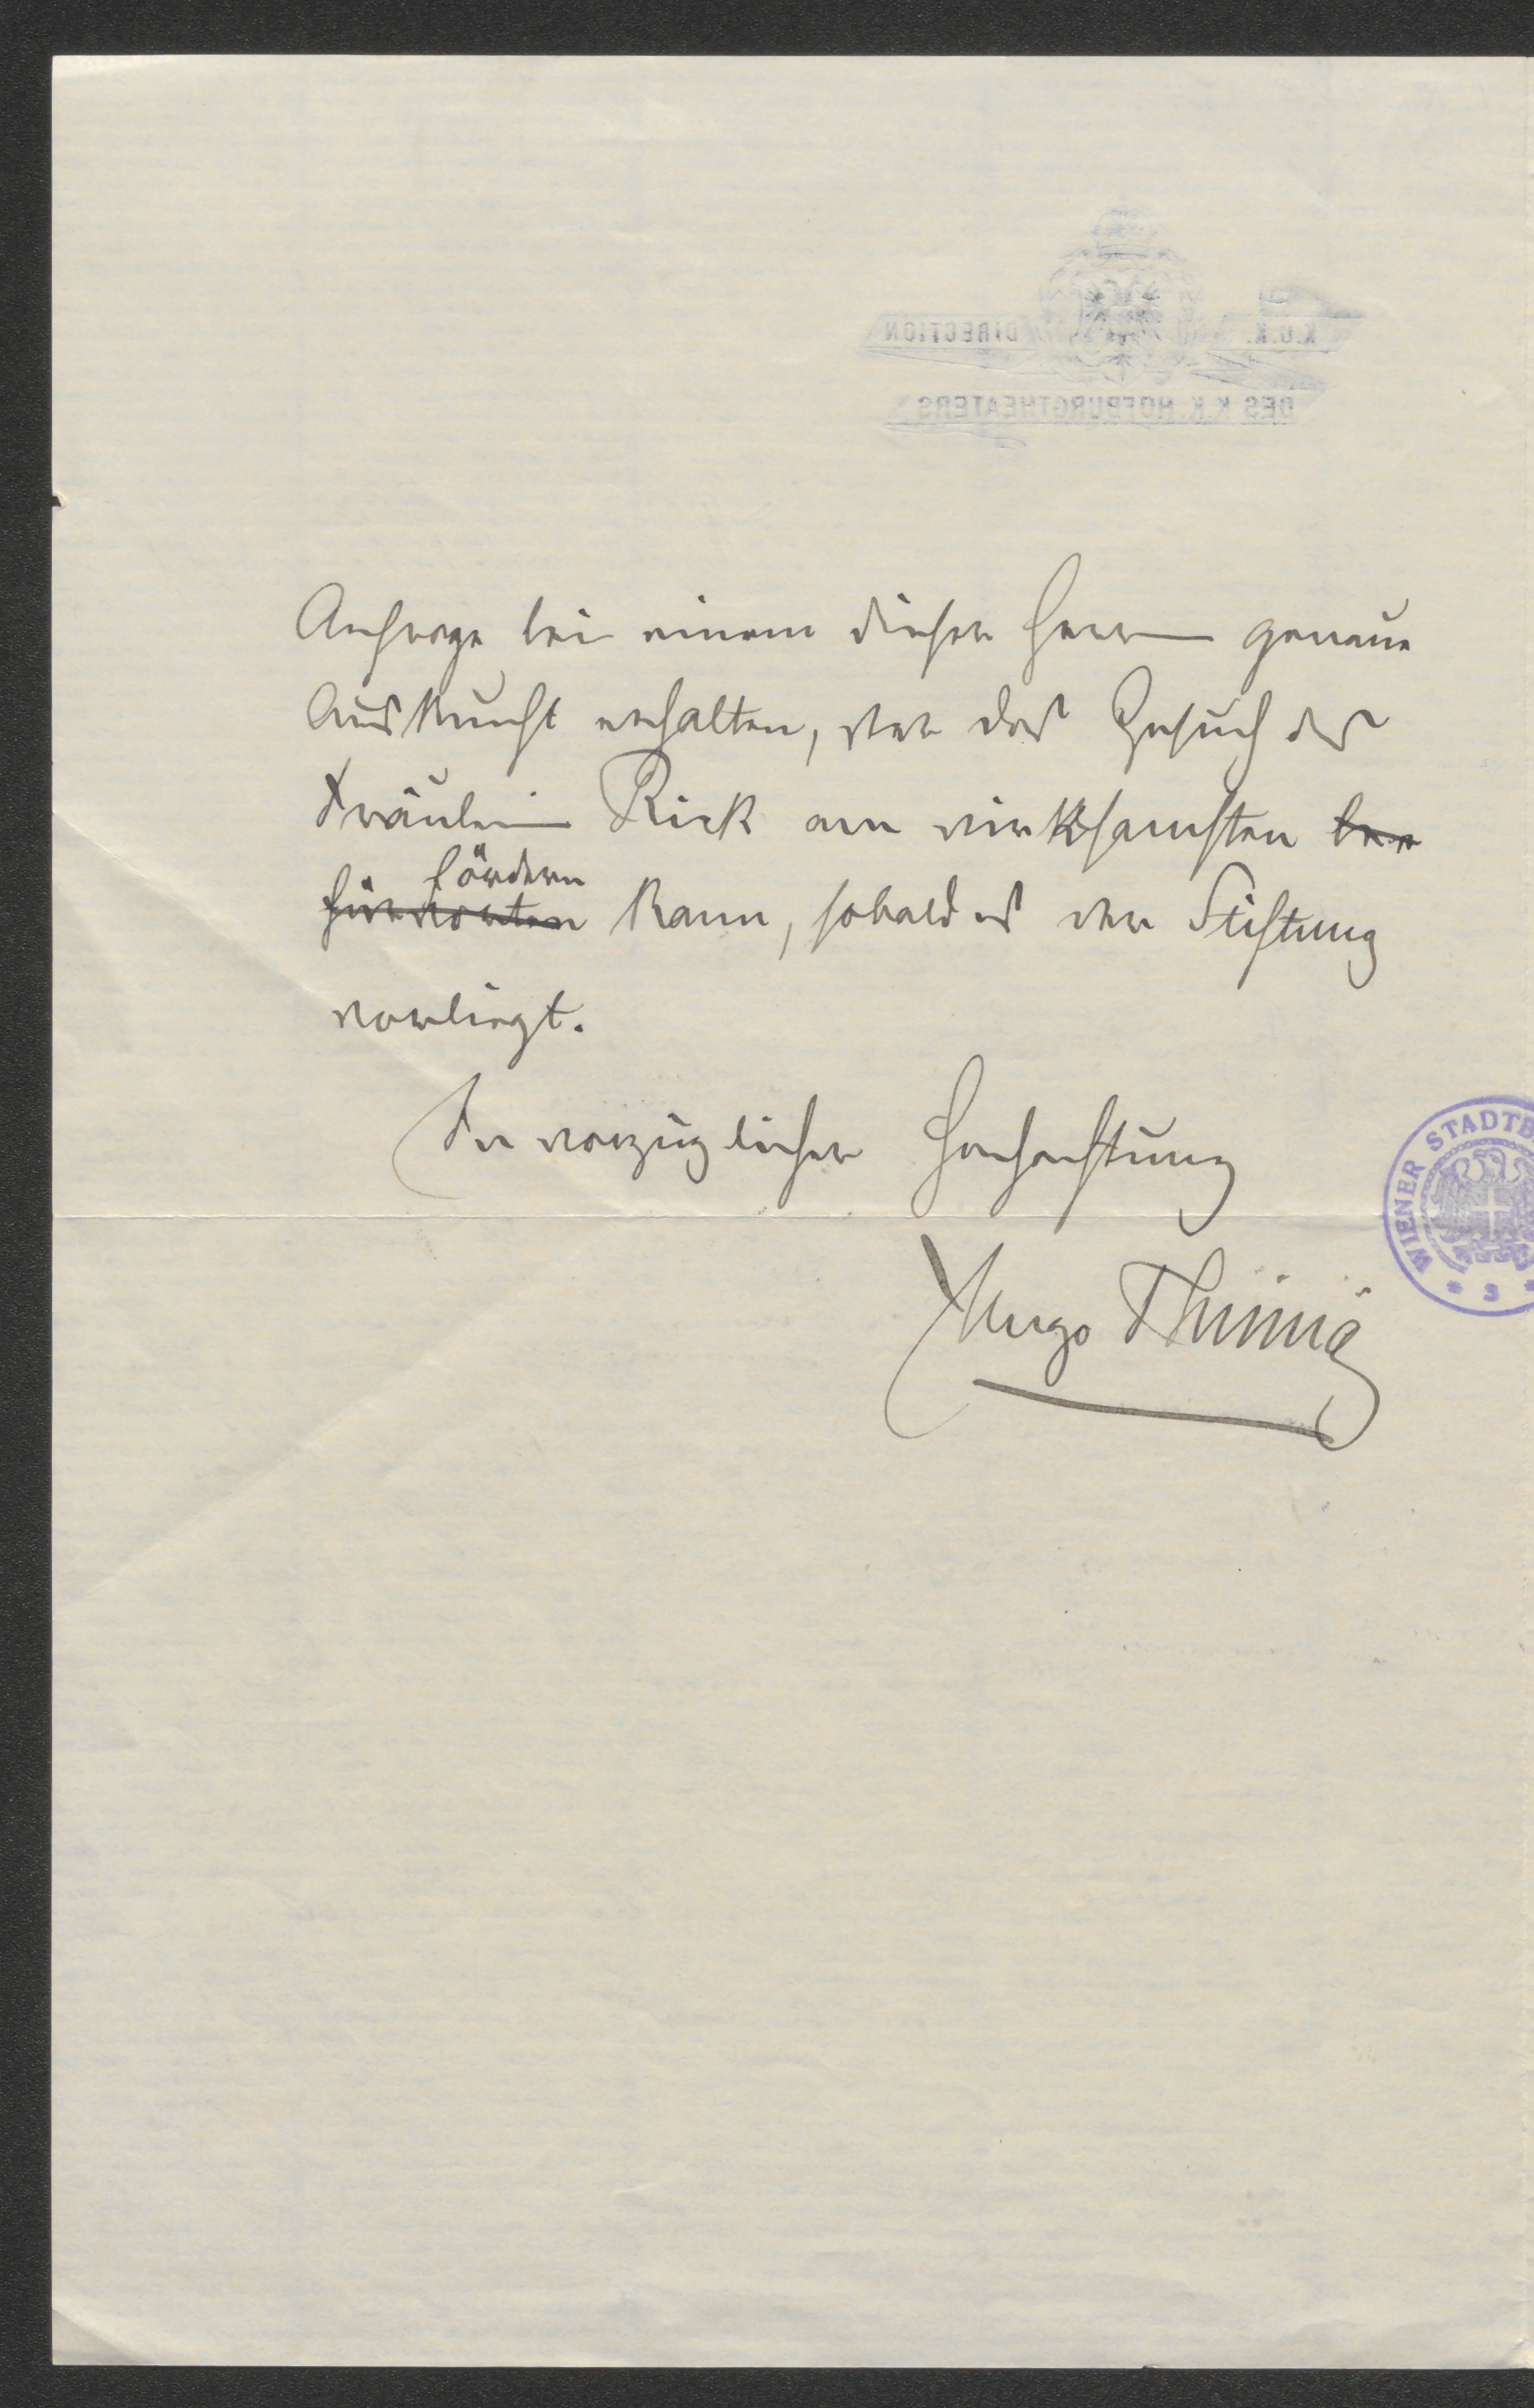 K.U.K. DIRECTION
DES K.K. HOFBURGTHEATERS
Anfrage bei einem dieser Herrn genaue
Auskunft erhalten, wer das Gesuch des
Fräulein Rick am wirksamsten be
fördern
fürworten kann, sobald es der Stiftung
vorliegt.
In vorzüglicher Hochachtung
Hugo Thimig
WIENER STADTB
* S *